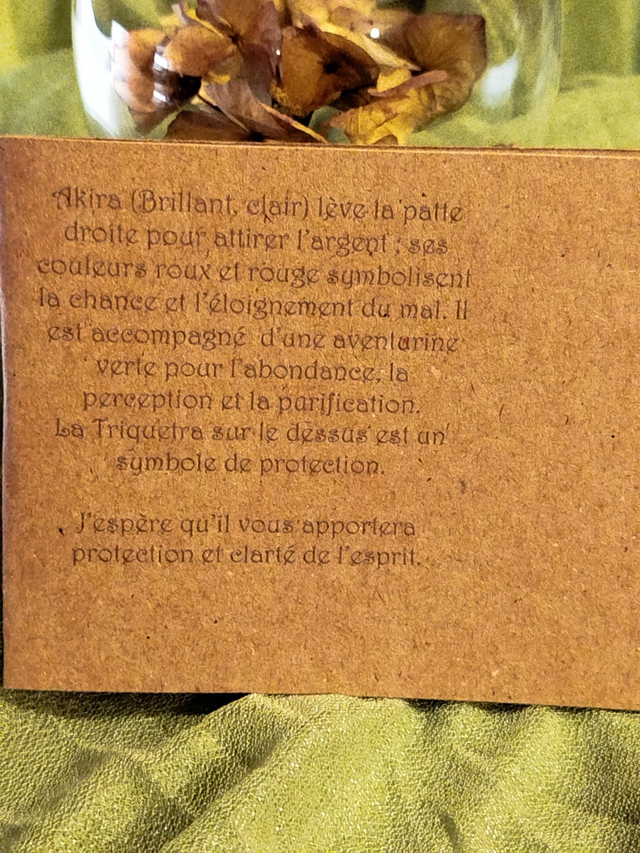 Akira (Brillant, clair) lève la patte
droite pour attirer l'argent ; ses
couleurs roux et rouge symbolisent
la chance et l'éloignement du mal. Il
est accompagné d'une aventurine
verte pour l'abondance, la
perception et la purification.
La Triquetra sur le dessus est un
symbole de protection.
J'espère qu'il vous apportera
protection et clarté de l'esprit.